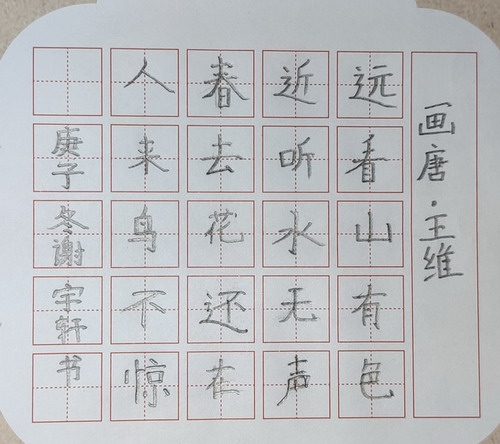 画唐·王维
远看山有色
近听水无声
春去花还在
人来鸟不惊
庚子冬谢宇轩书